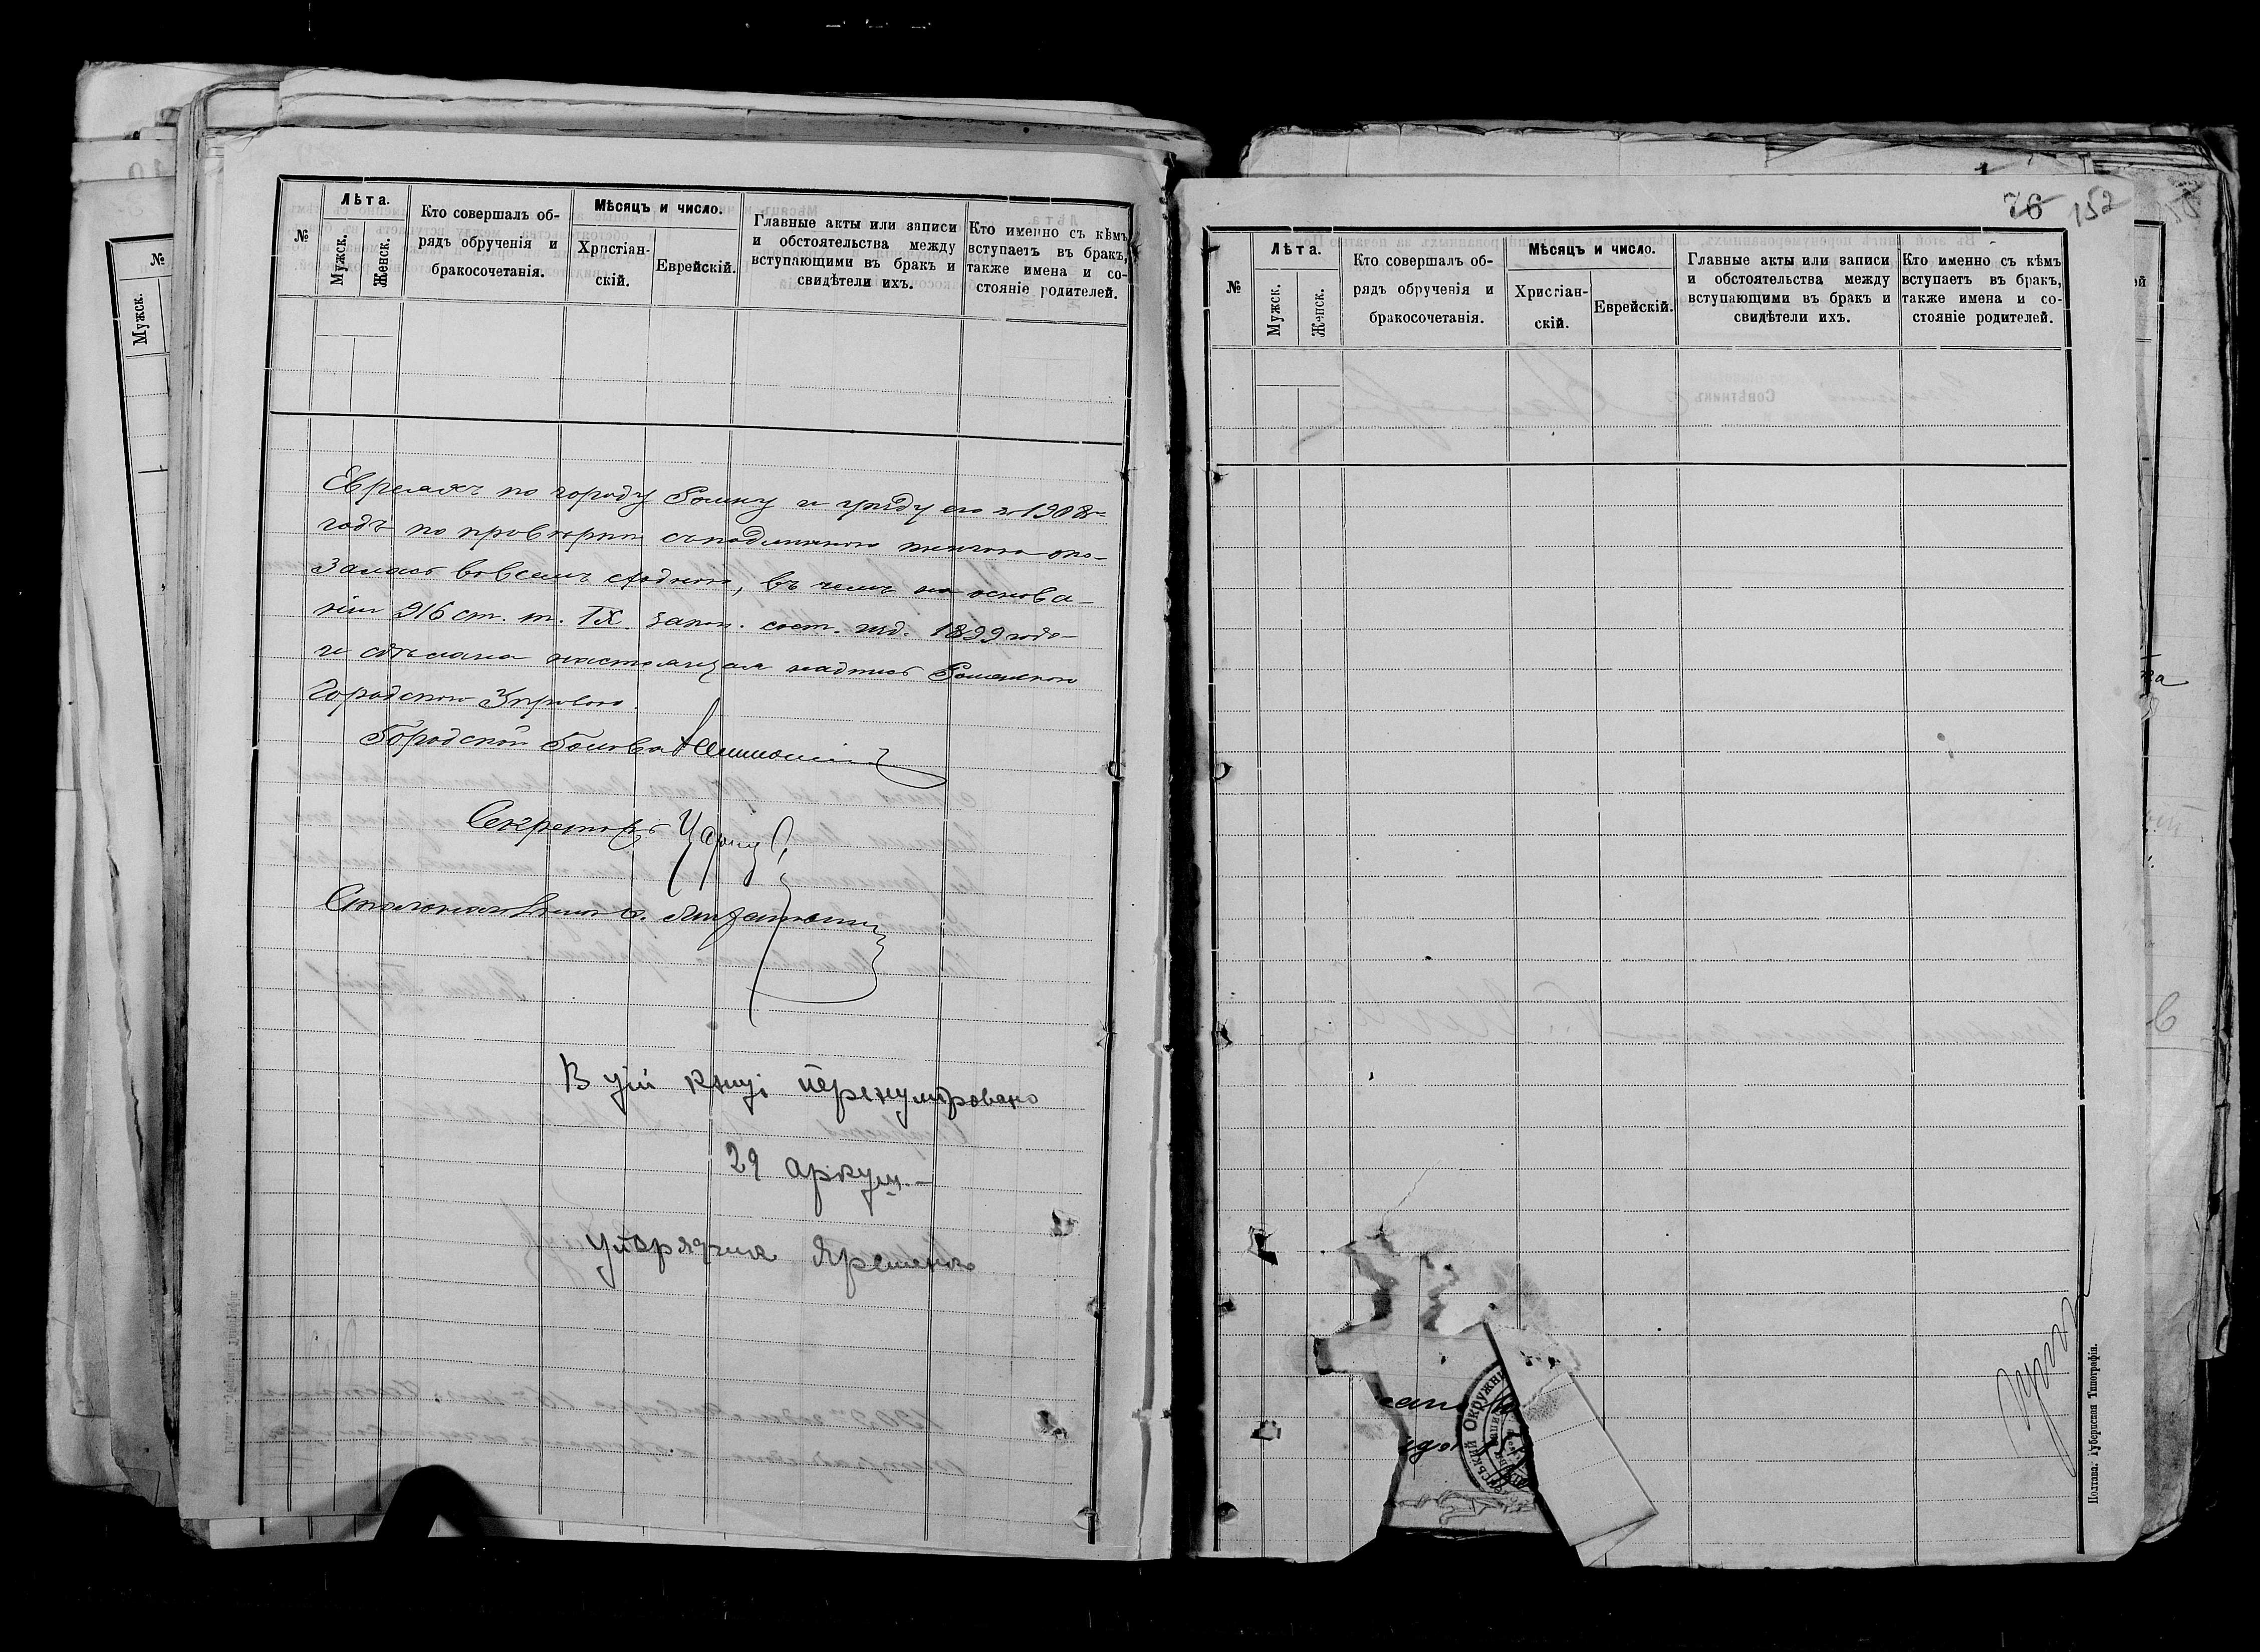 №
Лѣта.
Мужск.
Женск.
Кто совершалъ об-
рядъ обрученія и
бракосочетанія.
Мѣсяцъ и число.
Христіан-
скій.
Еврейскій.
Главные акты или записи
и обстоятельства между
вступающими въ бракъ и
свидѣтели ихъ.
Кто именно съ кѣмъ
вступаетъ въ бракъ,
также имена и со-
стояніе родителей.
Евреяхъ по городу Ромну и уѣзду его за 1908
годъ по провѣркѣ съ подлинною книгою ока-
залась во всемъ сходною, въ чемъ на основа-
ніи 916 ст. т. IX. закон. сост. изд. 1899 года
и сдѣлана настоящая надпись Роменскою
Городскою Управою.
Городской Голова
Секретарь
Столоначальникъ
В цій книзі перенумеровано
29 аркуш.
Упорядчик Яременко
76 152
№
Лѣта.
Мужск.
Женск.
Кто совершалъ об-
рядъ обрученія и
бракосочетанія.
Мѣсяцъ и число.
Христіан-
скій.
Еврейскій.
Главные акты или записи
и обстоятельства между
вступающими въ бракъ и
свидѣтели ихъ.
Кто именно съ кѣмъ
вступаетъ въ бракъ,
также имена и со-
стояніе родителей.
ський Окружн
Полтава. Губернская Типографія.
№
Мужск.